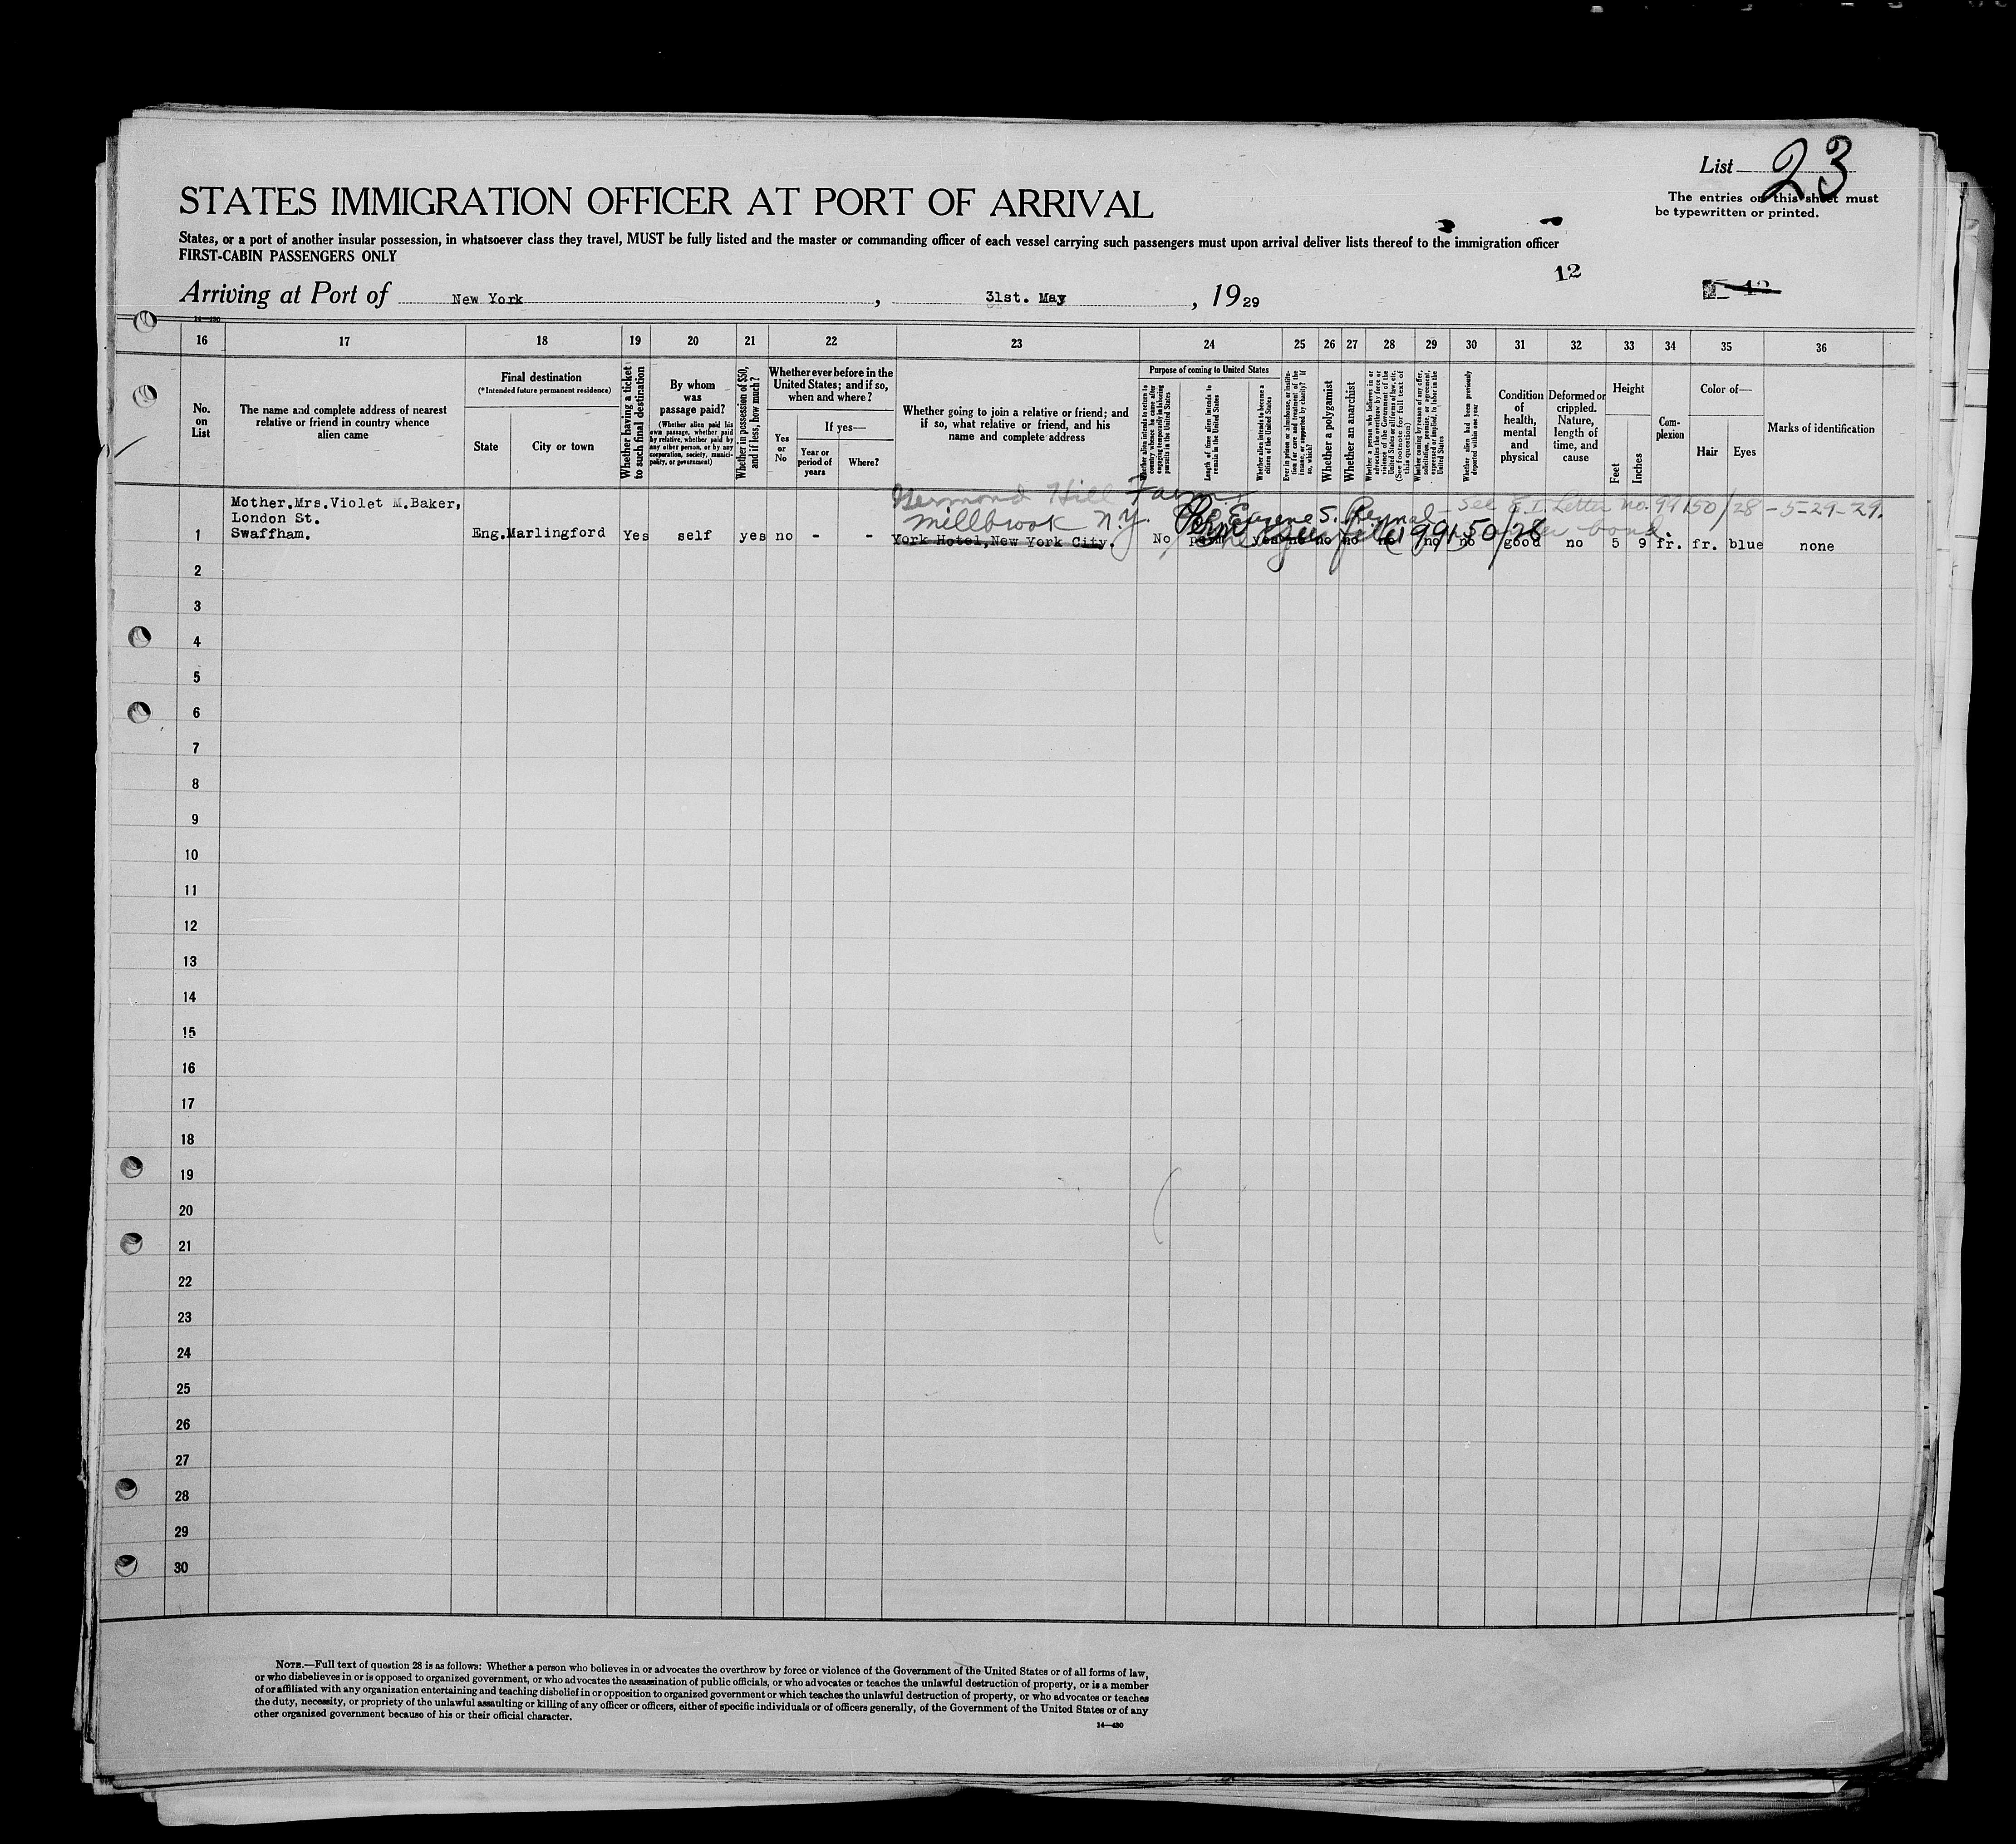 List 23
The entries on this sheet must
be typewritten or printed.
STATES IMMIGRATION OFFICER AT PORT OF ARRIVAL
States, or a port of another insular possession, in whatsoever class they travel, MUST be fully listed and the master or commanding officer of each vessel carrying such passengers must upon arrival deliver lists thereof to the immigration officer
FIRST-CABIN PASSENGERS ONLY
12
Arriving at Port of New York, 31st. May, 1929
14—430
16 17 18 19 20 21 22 23 24 25 26 27 28 29 30 31 32 33 34 35 36
No.
on
List
The name and complete address of nearest
relative or friend in country whence
alien came
Final destination
(*Intended future permanent residence)
State
City or town
Whether having a ticket
to such final destination
By whom
was
passage paid?
(Whether alien paid his
own passage, whether paid
by relative, whether paid by
any other person, or by any
corporation, society, munici-
pality, or government)
Whether in possession of $50,
and if less, how much?
Whether ever before in the
United States; and if so,
when and where?
Yes
or
No
If yes—
Year or
period of
years
Where?
Whether going to join a relative or friend; and
if so, what relative or friend, and his
name and complete address
Purpose of coming to United States
Whether alien intends to return to
country whence he came after
engaging temporarily in laboring
pursuits in the United States
Length of time alien intends to
remain in the United States
Whether alien intends to become a
citizen of the United States
Ever in prison or almshouse, or institu-
tion for care and treatment of the
insane, or supported by charity? If
so, which?
Whether a polygamist
Whether an anarchist
Whether a person who believes in or
advocates the overthrow by force or
violence of the Government of the
United States or all forms of law, etc.
(See footnote for full text of
this question)
Whether coming by reason of any offer,
solicitation, promise, or agreement,
expressed or implied, to labor in the
United States
Whether alien had been previously
deported within one year
Condition
of
health,
mental
and
physical
Deformed or
crippled.
Nature,
length of
time, and
cause
Height
Feet
Inches
Com-
plexion
Color of—
Hair
Eyes
Marks of identification
Hill Farm
Millbrook N.Y.
c/o Eugene S. Reynal - See E.I. Letter no. 99150/28 - 5-29-29.
bond.
99150/28
Mother.Mrs.Violet M.Baker,
London St.
Swaffham.
1 Eng. Marlingford Yes self yes no - - York Hotel, New York City. No perm yes no no no no no no good no 5 9 fr. fr. blue none
2
3
4
5
6
7
8
9
10
11
12
13
14
15
16
17
18
19
20
21
22
23
24
25
26
27
28
29
30
NOTE.—Full text of question 28 is as follows: Whether a person who believes in or advocates the overthrow by force or violence of the Government of the United States or of all forms of law,
or who disbelieves in or is opposed to organized government, or who advocates the assassination of public officials, or who advocates or teaches the unlawful destruction of property, or is a member
of or affiliated with any organization entertaining and teaching disbelief in or opposition to organized government or which teaches the unlawful destruction of property, or who advocates or teaches
the duty, necessity, or propriety of the unlawful assaulting or killing of any officer or officers, either of specific individuals or of officers generally, of the Government of the United States or of any
other organized government because of his or their official character.
14—430